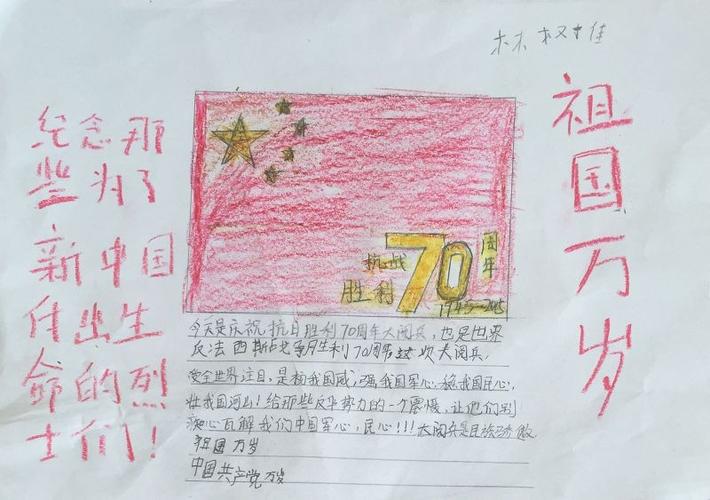 林权佳
祖国万岁
纪念那
些为了
新中国
付出生
命的烈
士们!
抗战
胜利
70
周年
1945-2015
今天是庆祝抗日胜利70周年大阅兵,也是世界
反法西斯战争胜利70周年这次大阅兵,
受全世界注目,是扬我国威,强我国军心,稳我国民心,
壮我国河山!给那些反华势力的一个震慑,让他们别
痴心瓦解我们中国军心,民心!!!大阅兵是民族骄傲
祖国万岁
中国共产党万岁